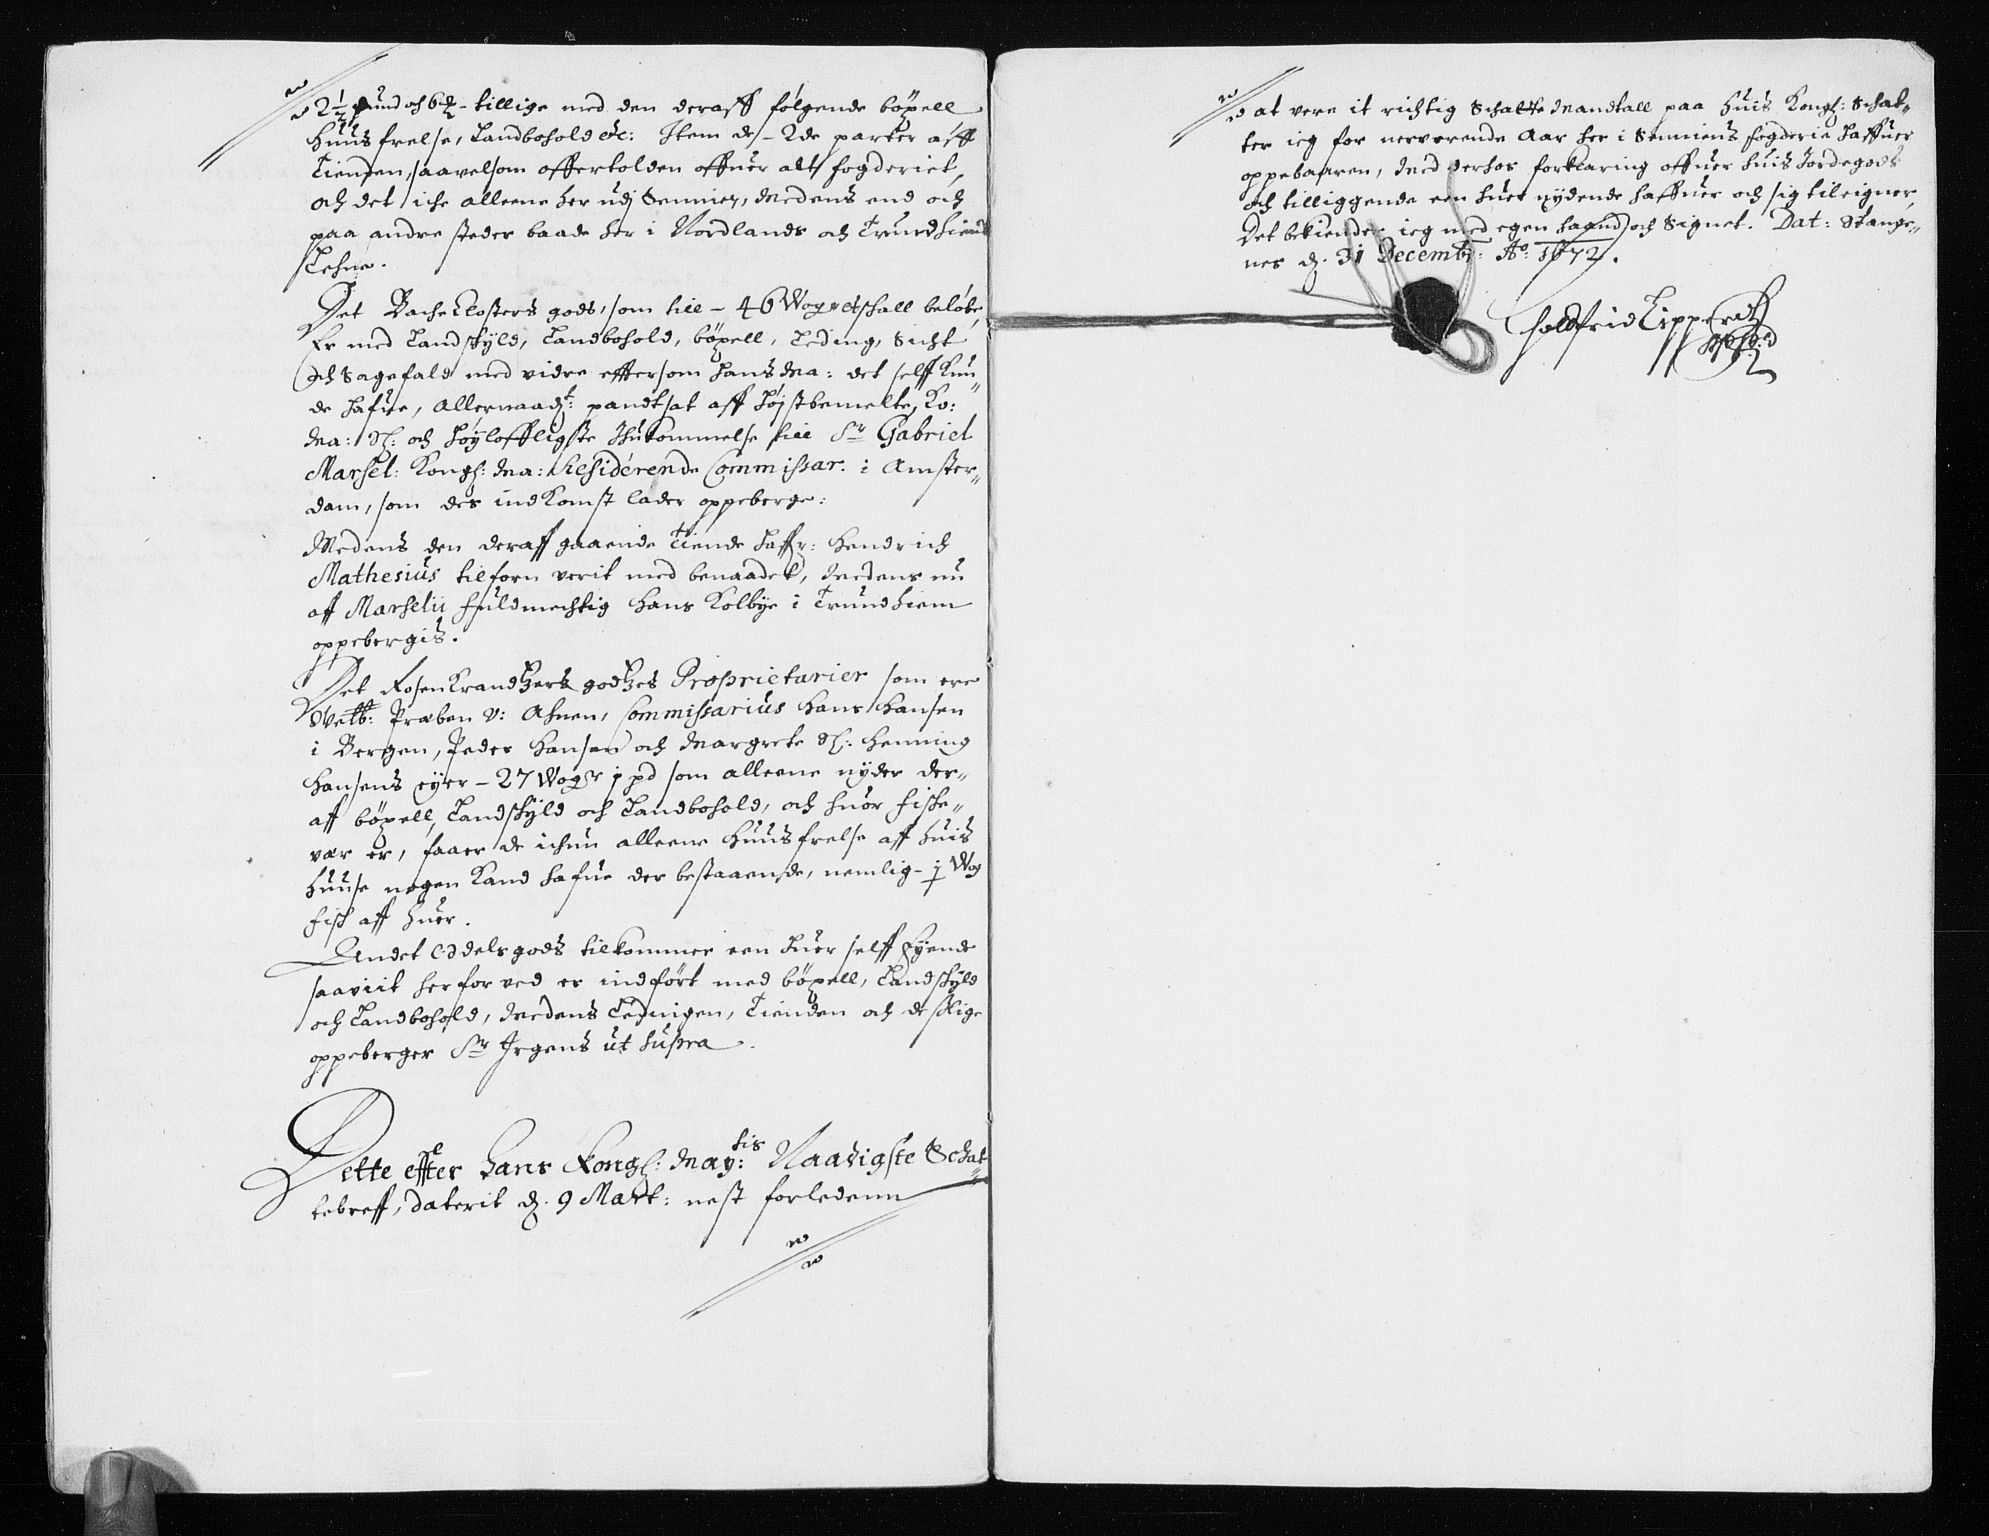 2½ pund och 6 ℔ - tillige med den deraff følgende böxell
Huusfrelse, Landbohold etc: Item de - 2de parter aff
Tienden, saavelsom offertolden offuer alt fogderiet,
och det iche alleene her udj Sennien, Medens end och
paa andre steder baade her i Nordlands och Trundhiems
Lehne.
Det Bache Closters gods, som till - 46 Woger etshall beløbe,
Er med Landschyld, Landbohold, böxell, Leding, Sicht
och Sagefald med vidre eftersom hans Ma: det self Kun„
de hafue, Allernaadt: pandtsat aff højstbemelte, Ko:
Ma: Sl: och høyloffligste Ihukommelse till Sr Gabriel
Marsel: Kongl: Ma: Residérende Commissar: i Amster„
dam, som des indkomst lader oppeberge:
Medens den deraff gaaende Tiende haffr: Hendrich
Mathesius tilforn verit med benaadet, Medens nu
aff Marselii fuldmechtig Hans Kolbye i Trundhiem
oppebergis.
Det Rosenkrandtzers godtzes Proprietarier som ere
Welb: Præben v: Ahnen, Commissarius Hans Hansen
i Bergen, Peder Hansen och Margrete Sl: Henning
Hansens eyer - 27 Woger j pd som alleene nyder der„
aff böxell, Landschyld och Landbohold, och huor fische„
vær er, faaer de ichun alleene Huusfrelse aff huis
Huuse nogen Kand hafue der bestaaende, nemlig - j Wog
fisch aff huer.
Andet Oddelsgods tilkommer een huer self Eyende
saaviit herforved er indført med böxell, Landschyld
och Landbohold, Medens Ledingen, Tienden och deslige
oppeberger Sr Jrgens ut supra.
Dette effter Hans Kongl: May:tis Naadigste Schat„
tebreff, daterit d. 9 Mart: nest forledenn
at vere it richtig Schatte Mandtall paa huis Kongl: Schat„
ter ieg for nerverende Aar her i Senniens fogderie haffuer
oppebaaren, Med derhos forklaring offuer huis Jordegods
och tilliggende een huer nydende haffuer och sig tileigner,
Det bekiender ieg med egen haand och Signet. Dat: Stange„
nes d. 31 Decembr: Ao: 1672.
Goedfrid Lipperdt